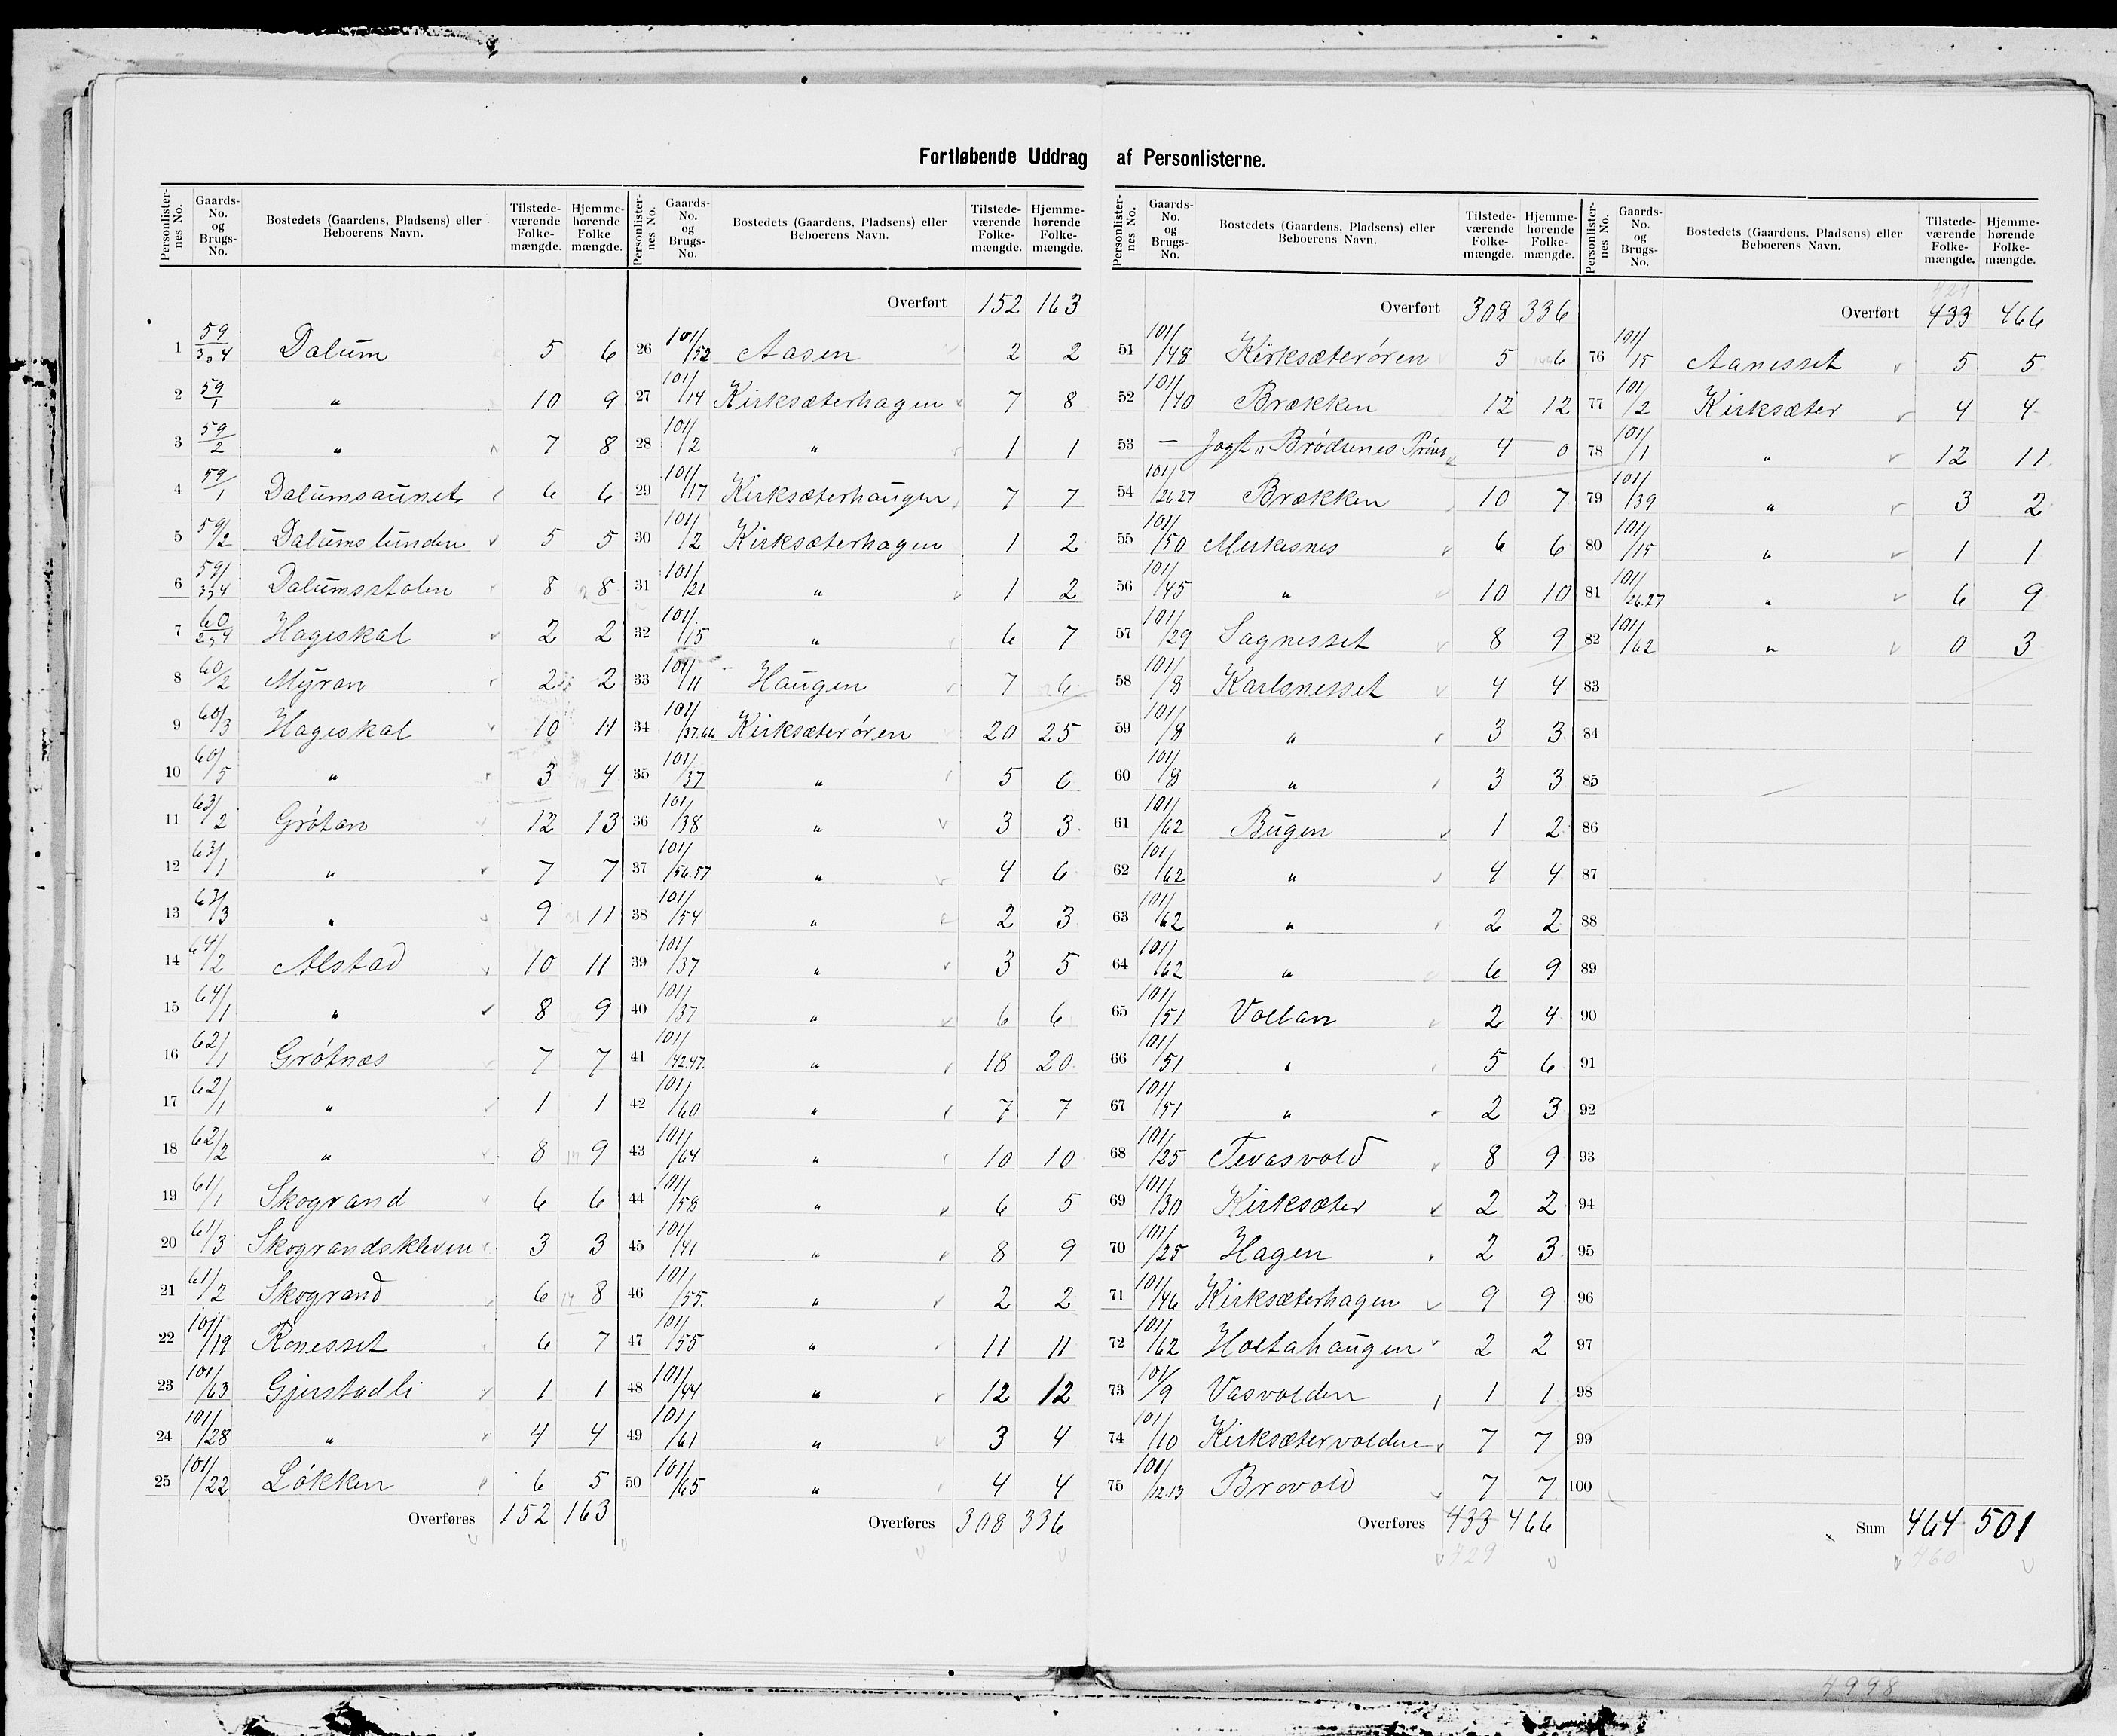 Fortløbende Uddrag af Personlisterne.
Personlisternes No. Gaards-No. og Brugs-No. Bostedets (Gaardens, Pladsens) eller Beboerens Navn. Tilstedeværende Folkemængde. Hjemmehørende Folkemængde.
1 59/3,4 Dalum 5 6
2 59/1 " 10 9
3 59/2 " 7 8
4 59/1 Dalumsaunet 6 6
5 59/2 Dalumslunden 5 5
6 59/3,4 Dalumsstolen 8 8
7 60/2,4 Hageskal 2 2
8 60/2 Myran 2 2
9 60/3 Hageskal 10 11
10 60/5 " 3 4
11 63/2 Grøtan 12 13
12 63/1 " 7 7
13 63/3 " 9 11
14 64/2 Alstad 10 11
15 64/1 " 8 9
16 62/1 Grøtnæs 7 7
17 62/1 " 1 1
18 62/2 " 8 9
19 61/1 Skogrand 6 6
20 61/3 Skograndskleven 3 3
21 61/2 Skogrand 6 8
22 101/19 Ronesset 6 7
23 101/63 Gjerstadli 1 1
24 101/28 " 4 4
25 101/22 Løkken 6 5
Overføres 152 163
Personlisternes No. Gaards-No. og Brugs-No. Bostedets (Gaardens, Pladsens) eller Beboerens Navn. Tilstedeværende Folkemængde. Hjemmehørende Folkemængde.
Overført 152 163
26 101/52 Aasen 2 2
27 101/14 Kirksæterhagen 7 8
28 101/2 " 1 1
29 101/17 Kirksæterhaugen 7 7
30 101/2 Kirksæterhagen 1 2
31 101/21 " 1 2
32 101/15 " 6 7
33 101/11 Haugen 7 6
34 101/37.66 Kirksæterøren 20 25
35 101/37 " 5 6
36 101/38 " 3 3
37 101/56.57 " 4 6
38 101/54 " 2 3
39 101/37 " 3 5
40 101/37 " 6 6
41 101/42.47. " 18 20
42 101/60 " 7 7
43 101/64 " 10 10
44 101/58 " 6 5
45 101/41 " 8 9
46 101/55. " 2 2
47 101/55 " 11 11
48 101/44 " 12 12
49 101/61 " 3 4
50 101/65 " 4 4
Overføres 308 336
Personlisternes No. Gaards-No. og Brugs-No. Bostedets (Gaardens, Pladsens) eller Beboerens Navn. Tilstedeværende Folkemængde. Hjemmehørende Folkemængde.
Overført 308 336
51 101/48 Kirksæterøren 5 6
52 101/40 Brækken 12 12
53 — Jagt „Brødrenes Prøve 4 0
54 101/26.27 Brækken 10 7
55 101/50 Merkesnes 6 6
56 101/45 " 10 10
57 101/29 Sagnesset 8 9
58 101/8 Karlsnesset 4 4
59 101/8 " 3 3
60 101/8 " 3 3
61 101/62 Bugen 1 2
62 101/62 " 4 4
63 101/62 " 2 2
64 101/62 " 6 9
65 101/51 Vollan 2 4
66 101/51 " 5 6
67 101/51 " 2 3
68 101/25 Tevasvold 8 9
69 101/30 Kirksæter 2 2
70 101/25 Hagen 2 3
71 101/46 Kirksæterhagen 9 9
72 101/62 Holtahaugen 2 2
73 101/9 Vasvolden 1 1
74 101/10 Kirksætervolden 7 7
75 101/12.13 Brovold 7 7
Overføres 433 466
429
Personlisternes No. Gaards-No. og Brugs-No. Bostedets (Gaardens, Pladsens) eller Beboerens Navn. Tilstedeværende Folkemængde. Hjemmehørende Folkemængde.
429
Overført 433 466
76 101/15 Aanesset 5 5
77 101/2 Kirksæter 4 4
78 101/1 " 12 11
79 101/39 " 3 2
80 101/15 " 1 1
81 101/26.27 " 6 9
82 101/62 " 0 3
83
84
85
86
87
88
89
90
91
92
93
94
95
96
97
98
99
100
Sum 464 501
460
4998